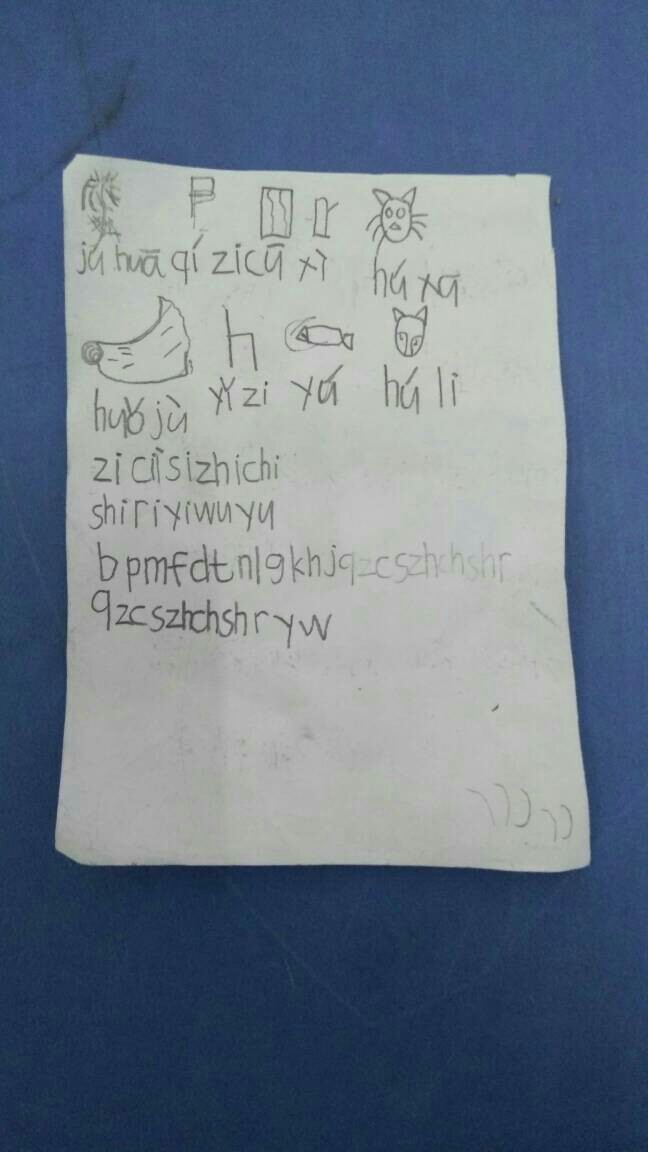 jú huā qí zi cū xì hú xā
huǒ jù yǐ zi yú hú li
zi ci si zhi chi
shi ri yi wu yu
b p m f d t n l g k h j q z c s zh ch sh r
q z c s zh ch sh r y w